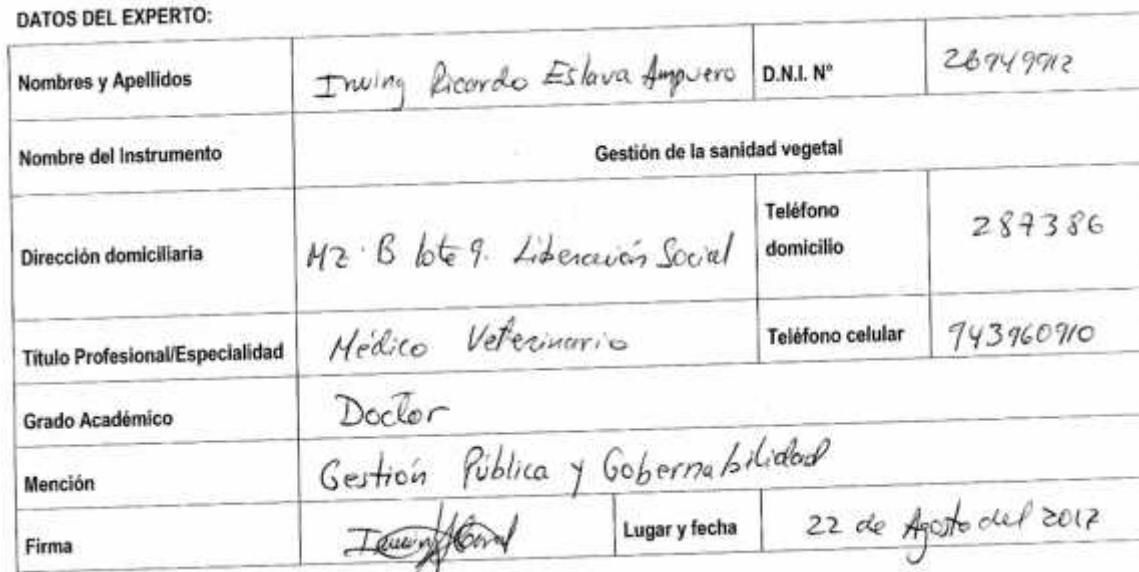 DATOS DEL EXPERTO:
Nombres y Apellidos Irwing Ricardo Eslava Ampuero D.N.I. N° 26949912
Nombre del Instrumento Gestión de la sanidad vegetal
Dirección domiciliaria MZ. B lote 9. Liberación Social Teléfono domicilio 287386
Título Profesional/Especialidad Médico Veterinario Teléfono celular 943960910
Grado Académico Doctor
Mención Gestión Pública y Gobernabilidad
Firma Lugar y fecha 22 de Agosto del 2017